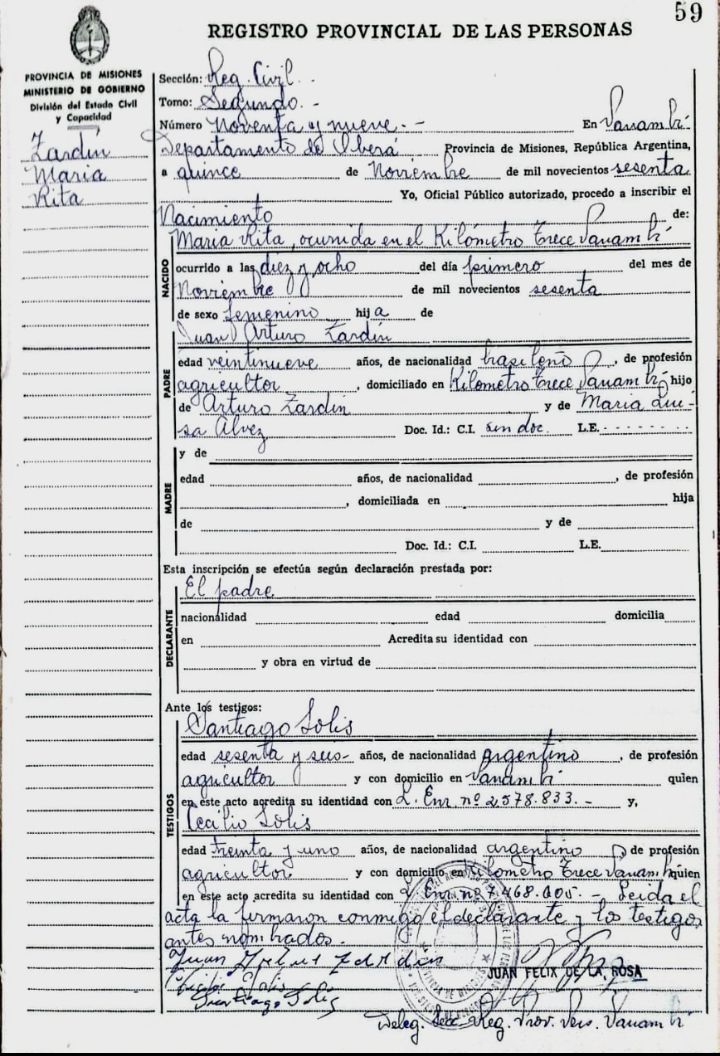 59
REGISTRO PROVINCIAL DE LAS PERSONAS
PROVINCIA DE MISIONES
MINISTERIO DE GOBIERNO
División del Estado Civil
y Capacidad
Zardin
Maria
Rita
Sección: Reg. Civil.-
Tomo: Segundo.-
Número Noventa y nueve.- En Panambí
Departamento de Oberá Provincia de Misiones, República Argentina,
a quince de Noviembre de mil novecientos sesenta
Yo, Oficial Público autorizado, procedo a inscribir el
Nacimiento de:
NACIDO
Maria Rita, ocurrida en el Kilómetro Trece Panambí
ocurrido a las diez y ocho del día primero del mes de
Noviembre de mil novecientos sesenta
de sexo femenino hija de
Juan Arturo Zardin
PADRE
edad veintinueve años, de nacionalidad brasileño, de profesión
agricultor, domiciliado en Kilómetro Trece Panambí hijo
de Arturo Zardin y de Maria Lui-
sa Alvez Doc. Id.: C.I. sin doc. L.E. - - - - - - - -
MADRE
y de
edad años, de nacionalidad , de profesión
, domiciliada en hija
de y de
Doc. Id.: C.I. L.E.
Esta inscripción se efectúa según declaración prestada por:
DECLARANTE
El padre
nacionalidad edad domicilia
en Acredita su identidad con
y obra en virtud de
Ante los testigos:
TESTIGOS
Santiago Solis
edad sesenta y seis- años, de nacionalidad argentino, de profesión
agricultor y con domicilio en Panambí quien
en este acto acredita su identidad con L. Enr. nº 2578.833.- y,
Cecilio Solis
edad treinta y uno años, de nacionalidad argentino de profesión
agricultor y con domicilio en Kilometro Trece Panambí quien
en este acto acredita su identidad con L. Enr. nº 7.468.005.- Leida el
acta la firmaron conmigo el declarante y los testigos
antes nombrados.
Juan Zardin
Cecilio Solis
Santiago Solis
JUAN FELIX DE LA ROSA
Deleg. Secc. Reg. Prov. Pers. Panambí